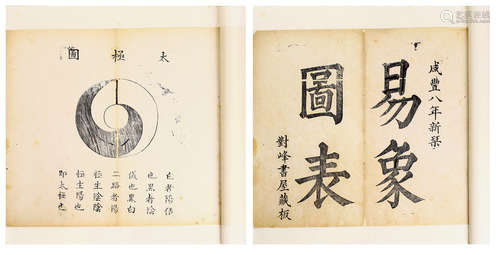 咸豐八年新栞
易象
圖表
對峰書屋藏板
太極圖
白者陽儀
也黑者陰
儀也黑白
二路者陽
極生陰陰
極生陽也
即太極也